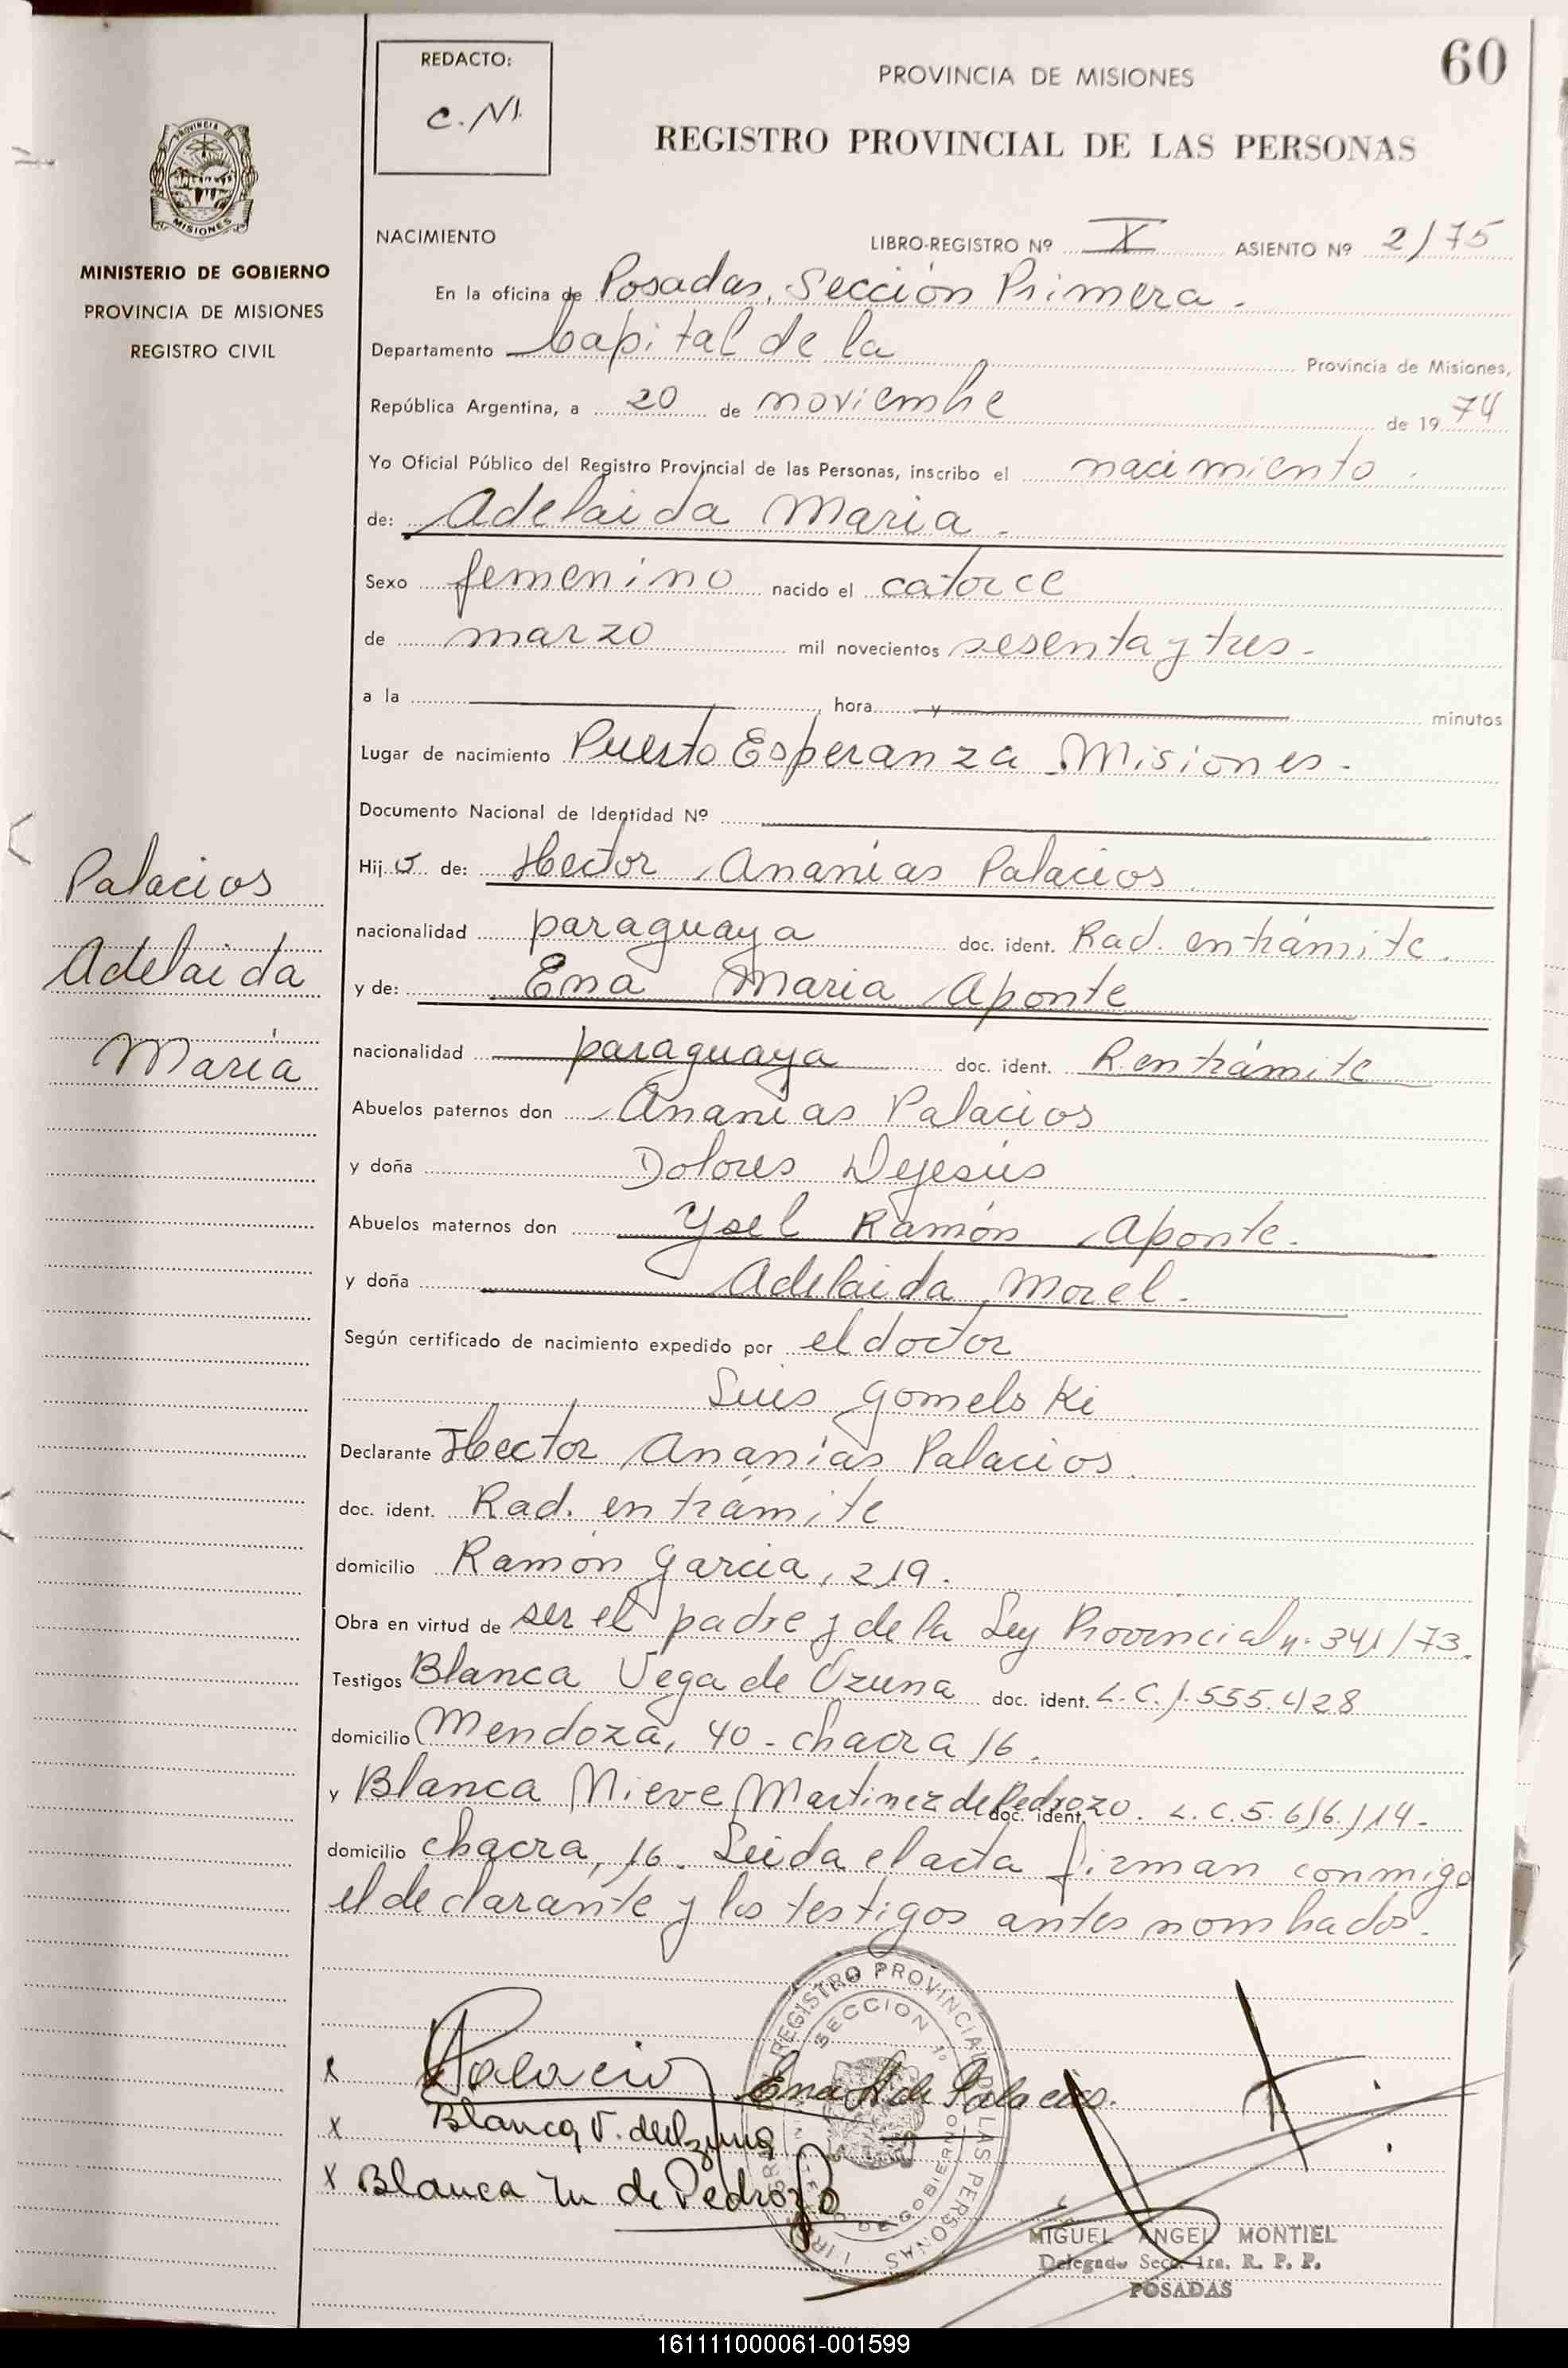 REDACTO:
C. N.
PROVINCIA DE MISIONES
60
REGISTRO PROVINCIAL DE LAS PERSONAS
PROVINCIA DE
MISIONES
MINISTERIO DE GOBIERNO
PROVINCIA DE MISIONES
REGISTRO CIVIL
NACIMIENTO
LIBRO-REGISTRO Nº X ASIENTO Nº 2/75
En la oficina de Posadas, Sección Primera.
Departamento Capital de la Provincia de Misiones,
República Argentina, a 20 de noviembre de 1974
Yo Oficial Público del Registro Provincial de las Personas, inscribo el nacimiento.
de: Adelaida Maria.
Sexo femenino nacido el catorce
de marzo mil novecientos sesenta y tres.
a la , hora y minutos
Lugar de nacimiento Puerto Esperanza Misiones.
Documento Nacional de Identidad Nº
Hijo de: Hector Ananias Palacios.
nacionalidad paraguaya doc. ident. Rad. en trámite.
y de: Ena Maria Aponte
nacionalidad paraguaya doc. ident. R. en trámite
Abuelos paternos don Ananias Palacios
y doña Dolores Dejesús
Abuelos maternos don Ysel Ramón Aponte.
y doña Adelaida Morel.
Según certificado de nacimiento expedido por el doctor
Luis Gomelski
Declarante Hector Ananias Palacios.
doc. ident. Rad. en trámite
domicilio Ramón Garcia, 219.
Obra en virtud de ser el padre y de la Ley Provincial n. 341/73.
Testigos Blanca Vega de Ozuna doc. ident. L. C. 1.555.428
domicilio Mendoza, 40 - chacra 16.
y Blanca Nieve Martinez de Pedrozo. doc. ident. L. C. 5.616.114-
domicilio chacra, 16. Leida el acta firman conmigo
el declarante y los testigos antes nombrados.
Palacios
Adelaida
María
x Palacios Ena A. de Palacios.
x Blanca V. de Ozuna
x Blanca M de Pedrozo
REGISTRO PROVINCIAL DE LAS PERSONAS
SECCION 1º
DE GOBIERNO
MIGUEL ANGEL MONTIEL
Delegado Secc. 1ra. R. P. P.
POSADAS
161111000061-001599